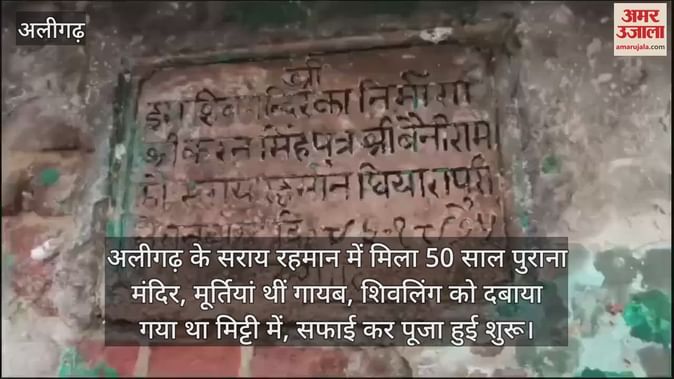 अलीगढ़
अमर
उजाला
amarujala.com
श्री
इस शिव मन्दिर का निर्माण
श्री करन सिंह पुत्र श्री बैनीराम
सराय रहमान
अलीगढ़ के सराय रहमान में मिला 50 साल पुराना
मंदिर, मूर्तियां थीं गायब, शिवलिंग को दबाया
गया था मिट्टी में, सफाई कर पूजा हुई शुरू।